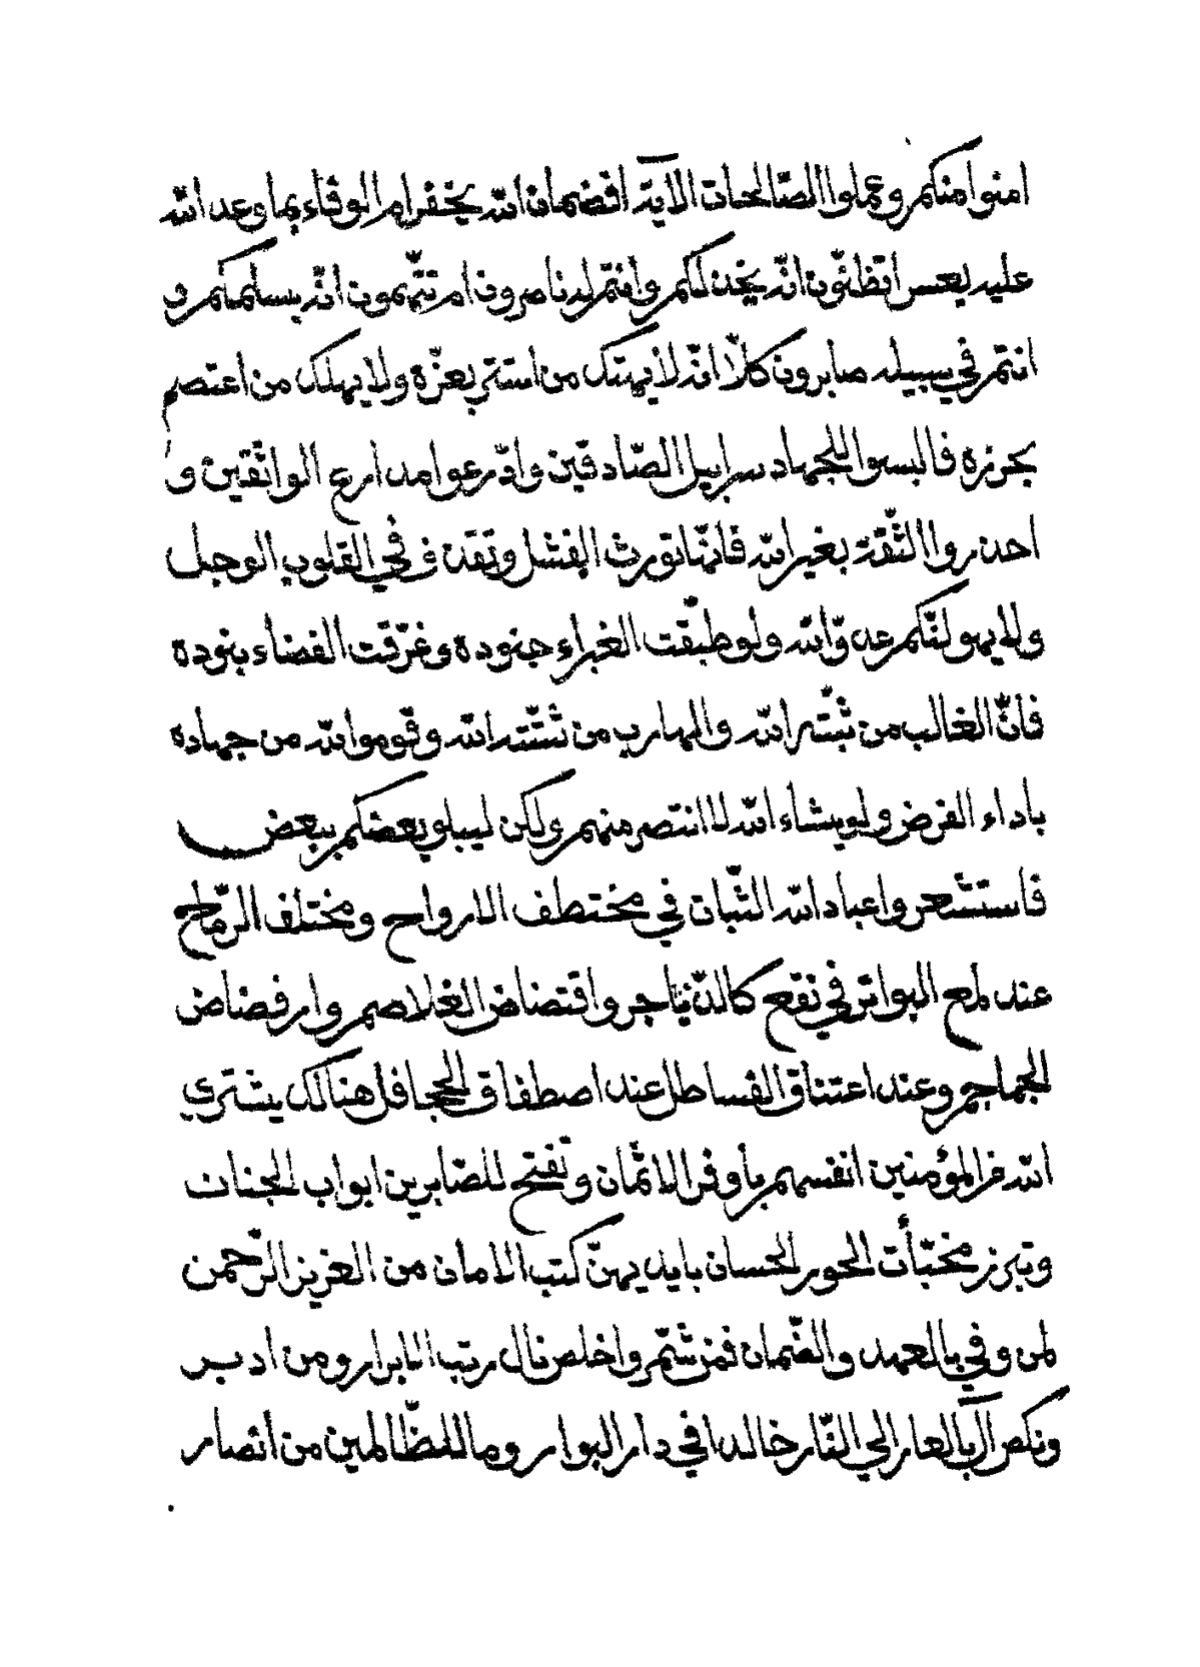 امنوا منكم وعملوا الصّالحات الآية افضمان الله يخفر ام الوفاء بما وعد الله
عليه يعسر اتظنّون انّه يخذلكم وانتم لدناصرون ام تتّهمون انّه يسلمكم و
انتم في سبيله صابرون كلّا انّه لا يهتك من استتر بعزّه ولا يهلك من اعتصم
بحرزه فالبسوا للجهاد سرابيل الصّادقين وادّرعوا مدارع الواثقين و
احذروا الثّقة بغير الله فانّها تورث الفشل وتقذف في القلوب الوجل
ولا يهولنّكم عدوّ الله ولو طبّقت الغبراء جنوده وغرّقت الفضاء بنوده
فانّ الغالب من ثبّته الله والهارب من شتّته الله وقوموا لله من جهاده
باداء الفرض ولو يشاء الله لانتصر منهم ولكن ليبلو بعضكم ببعض
فاستشعروا عباد الله الثّبات في مختطف الارواح ومختلف الرّماح
عند لمع البواتر في نقع كالدّياجر واقتضاض الغلاصم وارفضاض
الجماجم وعند اعتناق القساطل عند اصطفاق الجحافل هنالك يشتري
الله من المؤمنين انفسهم بأوفر الاثمان وتفتح للصّابرين ابواب الجنان
وتبرز مخبّأت الحور الحسان بايديهنّ كتب الامان من العزيز الرّحمن
لمن وفي بالعهد والضّمان فمن شمّر واخلص نال رتب الابرار ومن ادبر
ونكص آل بالعار الي النّار خالدا في دار البوار وما للظّالمين من انصار